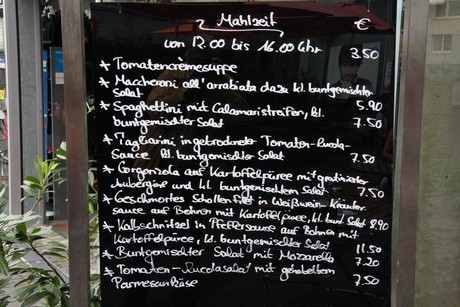 Mahlzeit €
von 12.00 bis 16.00 Uhr
* Tomatencrèmesuppe 3.50
* Maccheroni all'arrabiata dazu kl. buntgemischter
Salat 5.90
* Spaghettini mit Calamaristreifen, kl.
buntgemischter Salat 7.50
* Tagliarini in getrockneter Tomaten-Rucola-
Sauce kl. buntgemischter Salat 7.50
* Gorgonzola auf Kartoffelpüree mit gratinierter
Aubergine und kl. buntgemischtem Salat 7.50
* Geschmortes Schollenfilet in Weißwein-Kräuter
sauce auf Bohnen mit Kartoffelpüree, kl. bunt Salat 8.90
* Kalbschnitzel in Pfeffersauce auf Bohnen mit
Kartoffelpüree, kl. buntgemischter Salat 11.50
* Buntgemischter Salat mit Mozzarella 7.20
* Tomaten-Rucolasalat mit gehobeltem
Parmesankäse 7.50